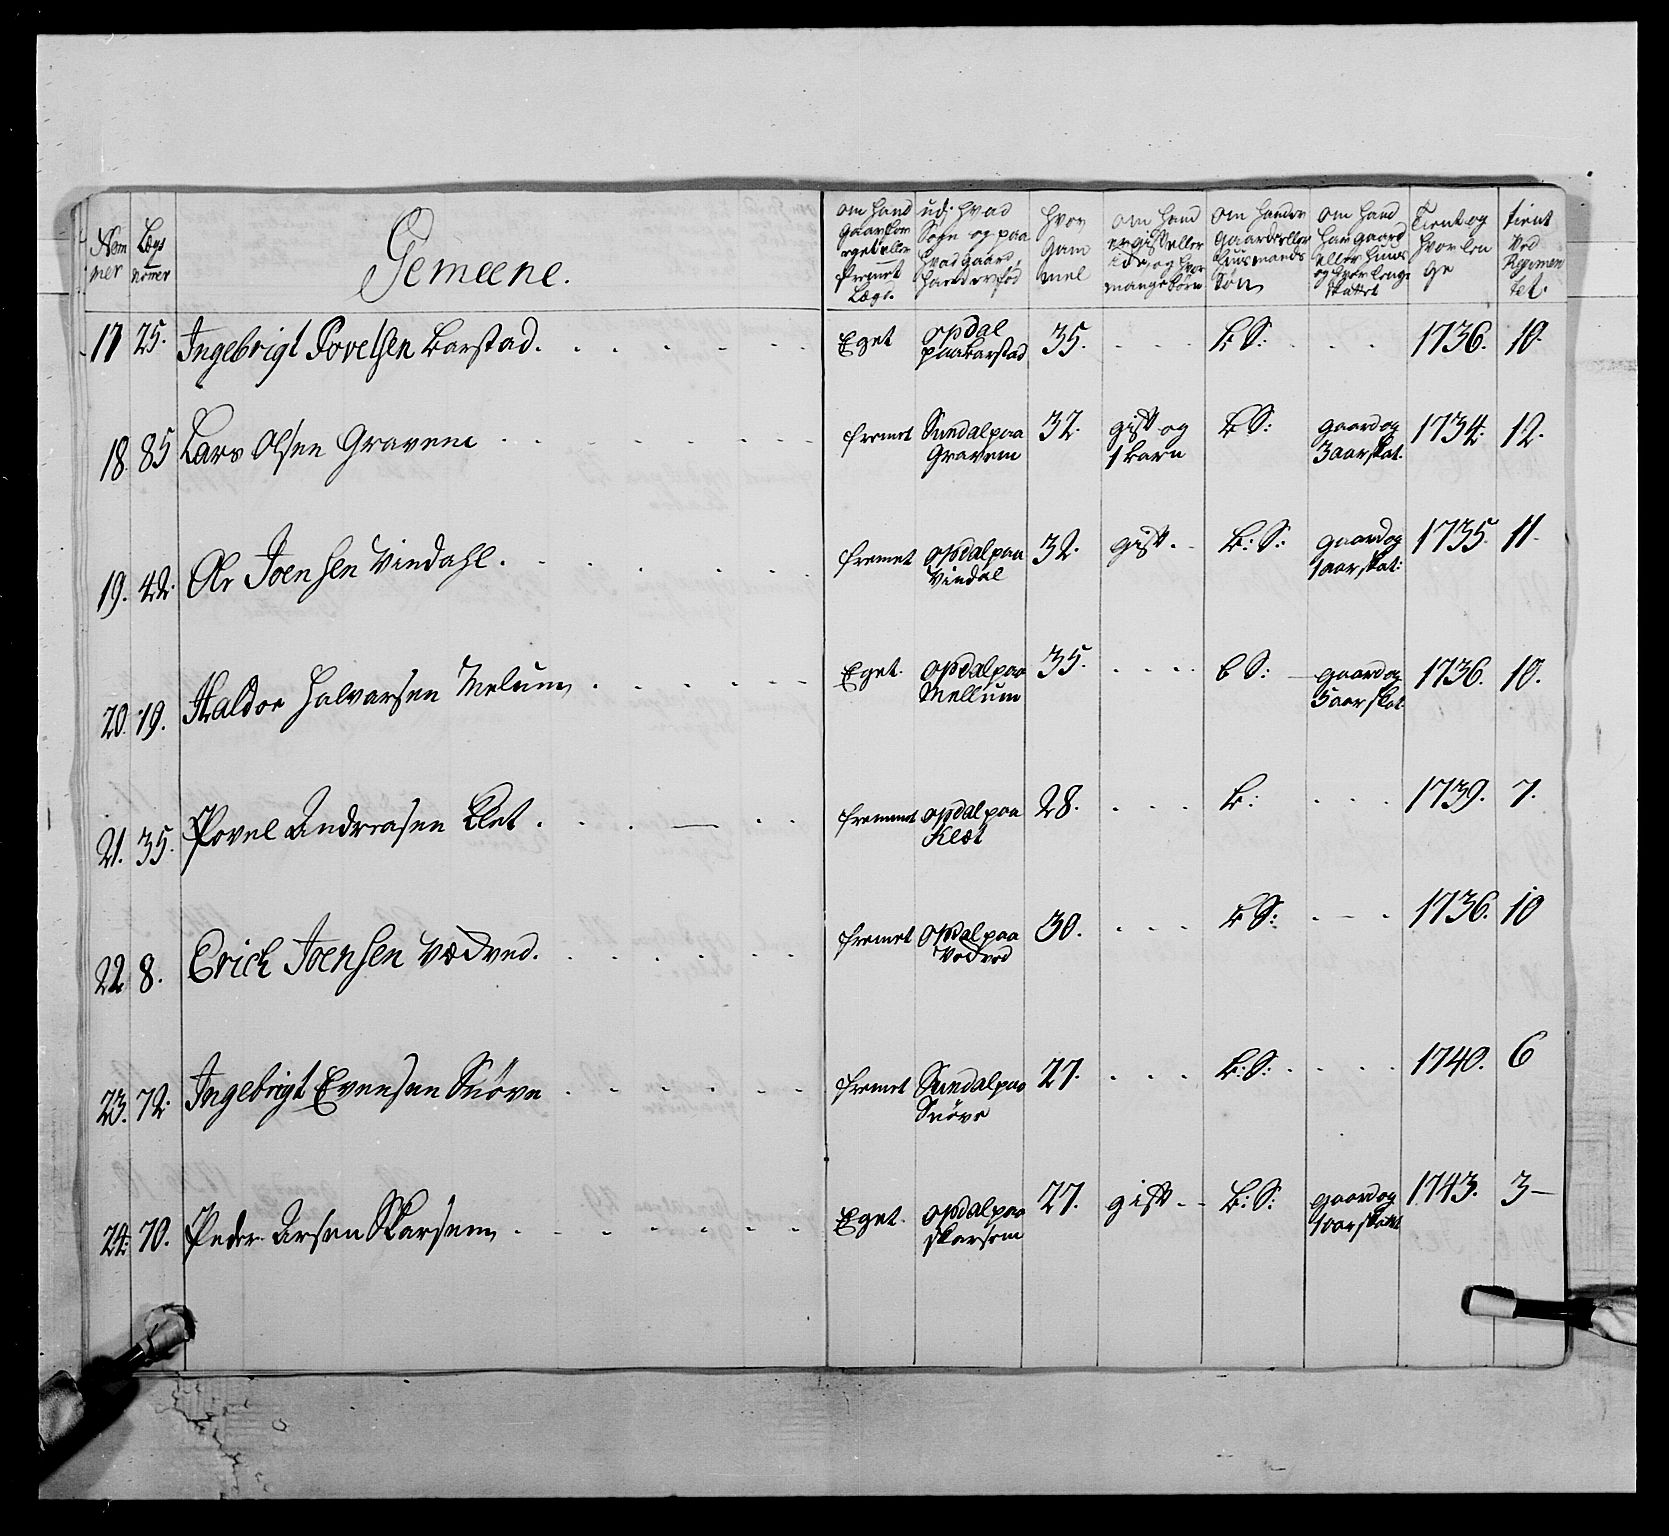 Nem
mer
Legs
nomer
Gemeene.
om hand
ud i hvad
Sogn og paa
hvad gaard
hand er fød
hvor
Gam
mel
om hand
er gift eller
Ede og hvor
mange børn
om hand er
Gaards eller
huusmands
Søn
om hand
har gaard
eller huus
og hvor lenge
skattet
Tient og
hvor len
ge
tient
ved
Regimen
tet.
17 25. Ingebrigt Povelsen Barstad. Eget opdal paa barstad 35. B S: 1736. 10.
18. 85 Lars Olsen Gravem fremet Sundal paa Gravem 32. gift og 1 barn B S: gaard og 3 aar skat. 1734. 12.
19. 42. Ole Joensen Vindahl. fremet opdal paa Vindal 32. gift. B: S: gaard og 1 aar skat: 1735. 11.
20. 19. Haldor Halvarsen Melum. Eget. opdal paa Mellum 35. B S: gaard og 5 aar skat. 1736. 10.
21. 35. Povel Andreasen Klet. fremmet opdal paa Klet 28. B: 1739. 7.
22 8. Erick Joensen Vædved. fremet opdal paa Vodvod 30. B S: 1736. 10
23. 72. Ingebrigt Evensen Snøve fremet Sundal paa Snøve 27. B: S: 1740. 6
24. 70. Peder Arsen Skarsem. Eget. opdal paa skarsem 27. gift B: S: gaard og 1 aar skattet 1743. 3